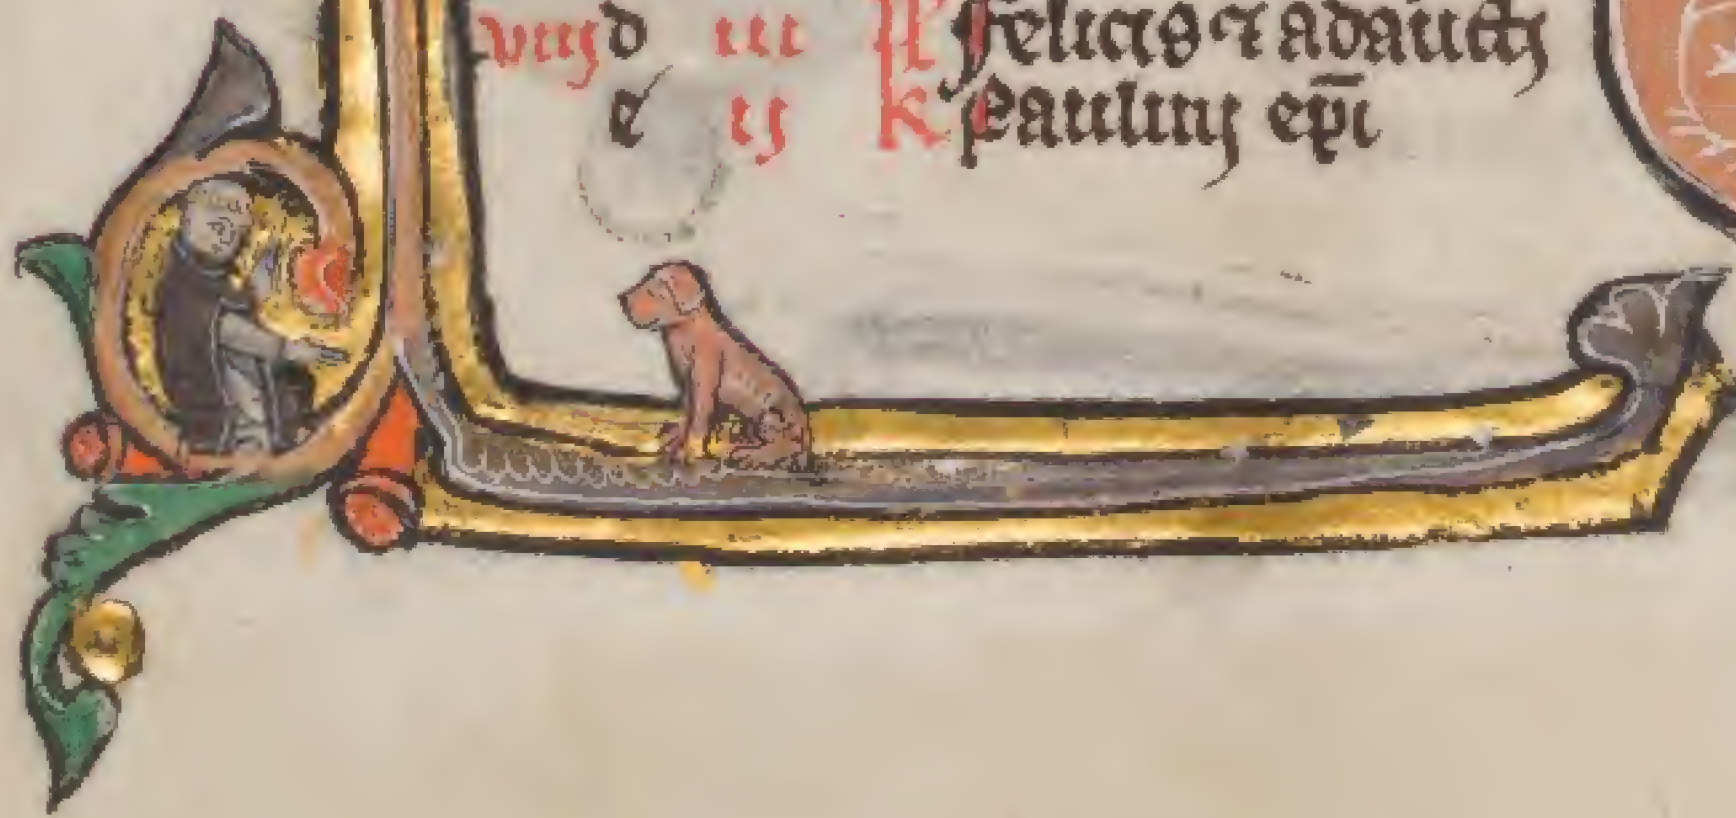 viij d iii kl felicis ⁊ adaucti
e ij kl Paulini ep̄i